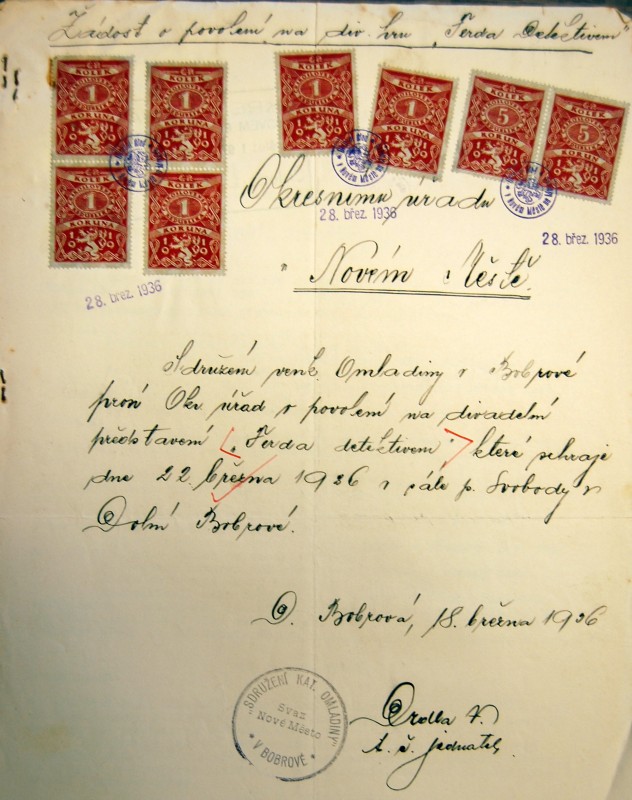 Žádost o povolení na div. hru „Ferda Detektivem"
KOLEK
1
KORUNA
KOLEK
1
KORUNA
KOLEK
1
KORUNA
KOLEK
1
KORUNA
KOLEK
1
KORUNA
KOLEK
1
KORUNA
KOLEK
5
KORUN
KOLEK
5
KORUN
Okresnímu úřadu
28. břez. 1936
28. břez. 1936
28. břez. 1936
Novém Městě.
Sdružení venk. Omladiny v Bobrové
prosí Okr. úřad o povolení na divadelní
představení „Ferda detektivem" které sehraje
dne 22. března 1936 v sále p. Svobody v
Dolní Bobrové.
D. Bobrová, 18. března 1936
"SDRUŽENÍ KAT. OMLADINY"
Svaz
Nové Město
* V BOBROVÉ *
t. č. jednatel.